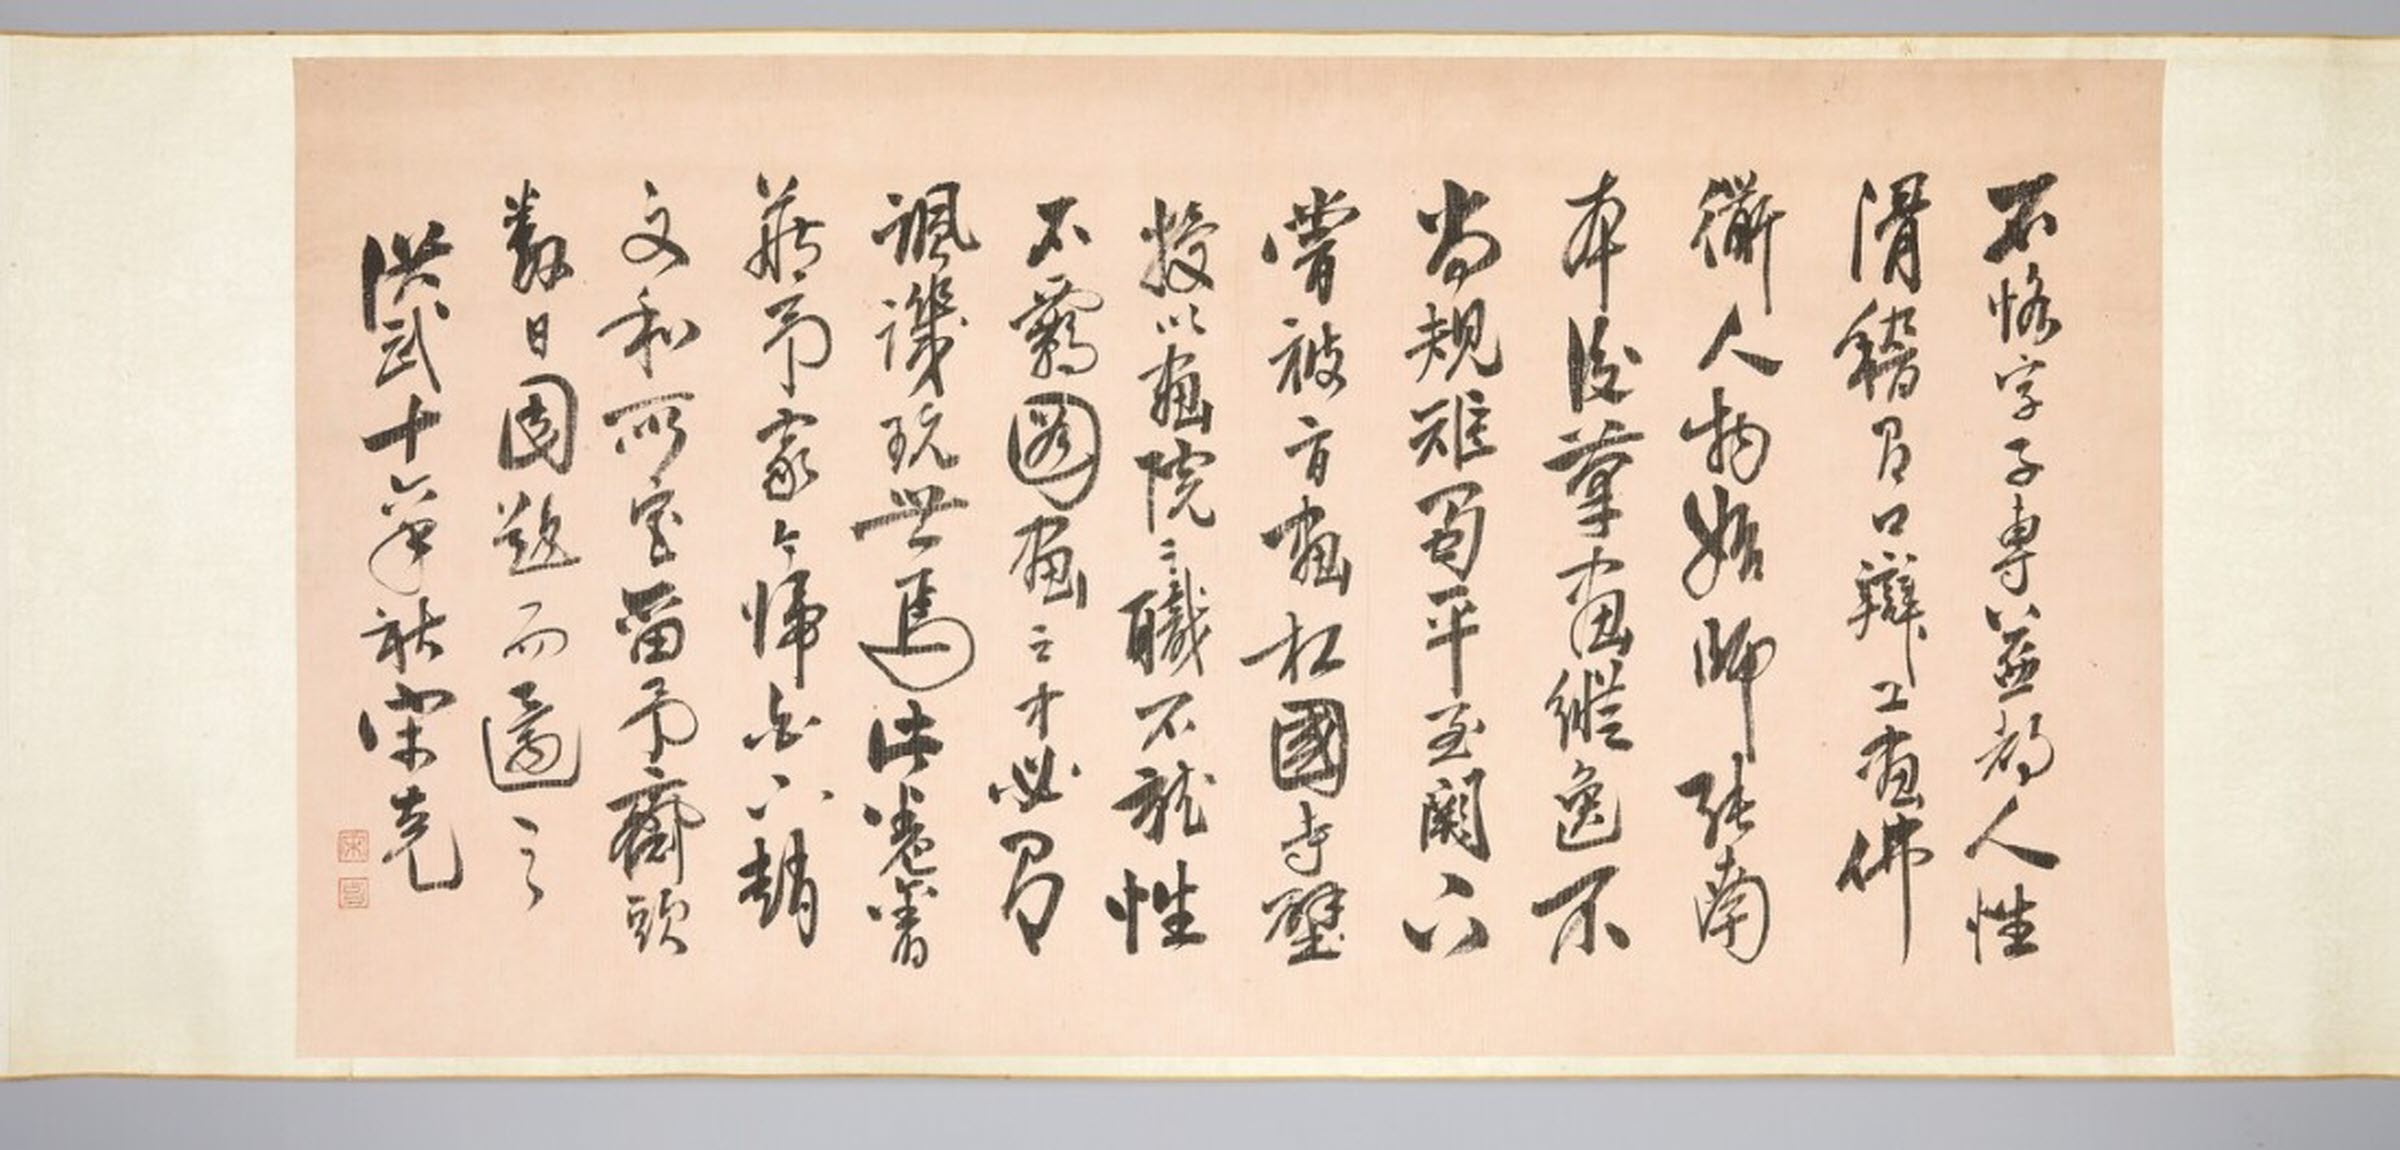 石恪字子專益都人性
滑稽有口辯工畫佛
衜人物始師張南
本後筆畫縱逸不
尚規矩蜀平至闕下
嘗被旨畫相國寺壁
授以畫院之職不就性
不羈圖畫之才必有
諷譏玩世焉此卷舊
藏予家今歸白下趙
文和所寄留予齋頭
數日因題而還之
洪武十六年秋宋克